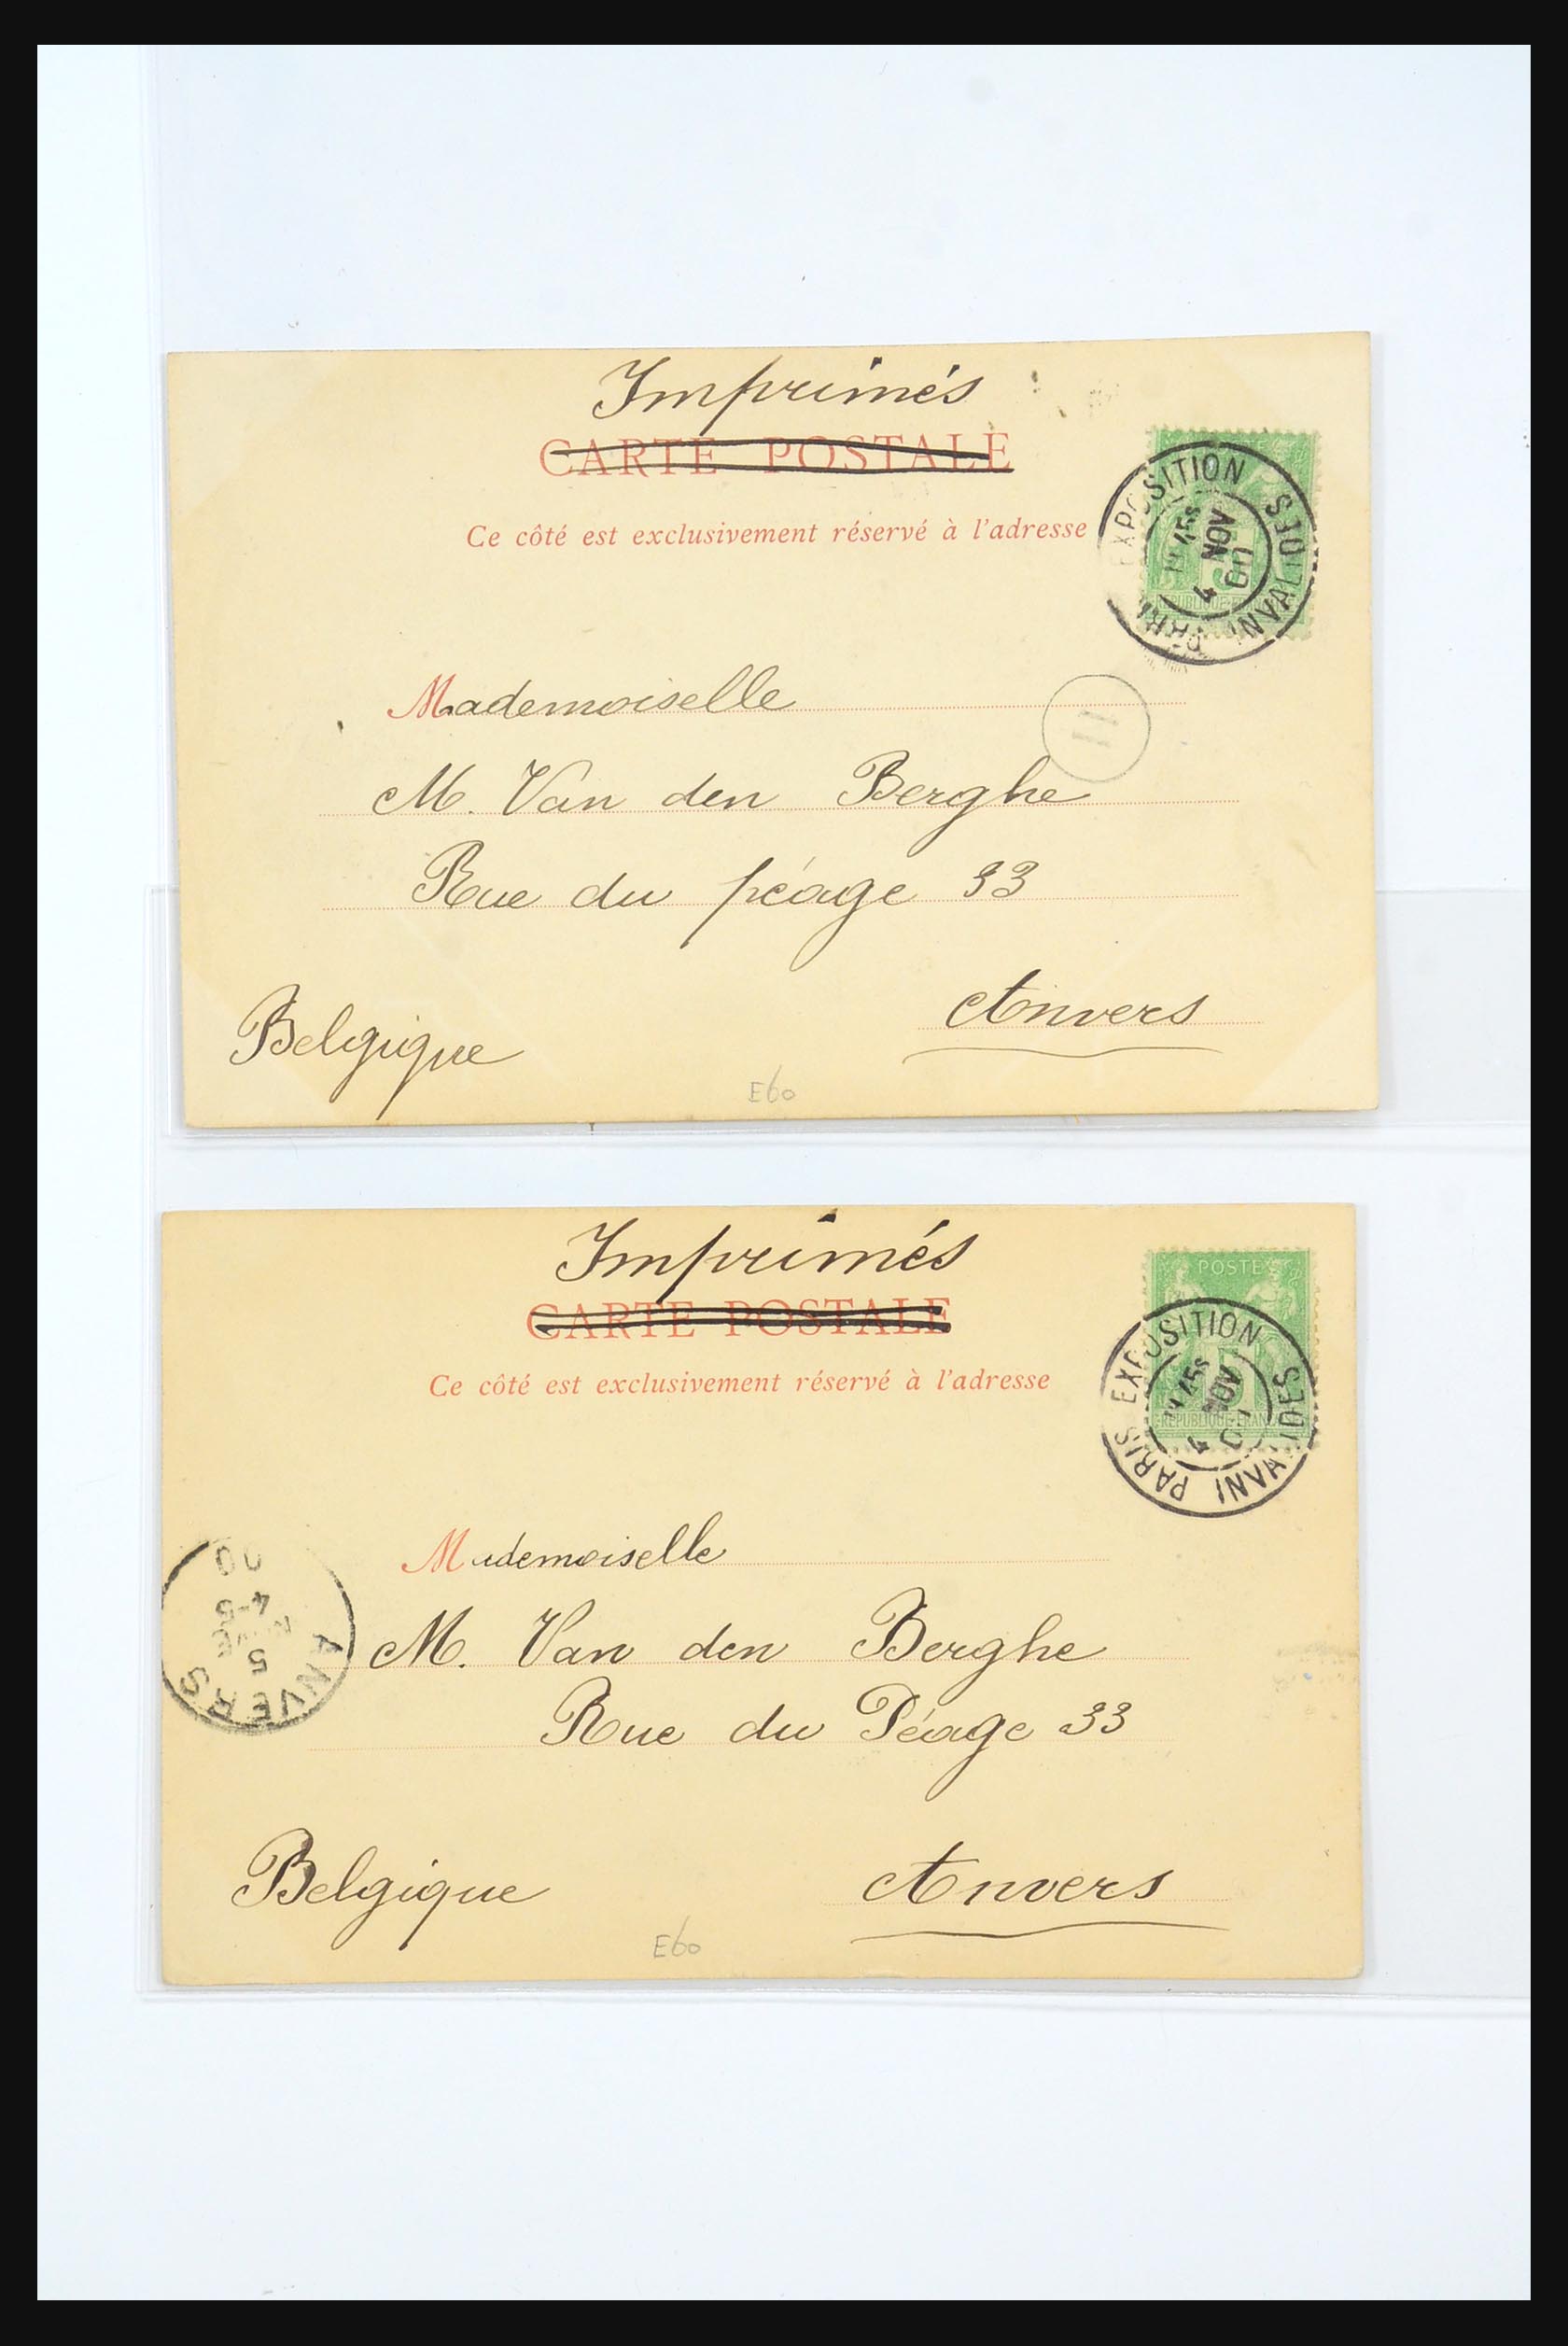 Imprimés
CARTE POSTALE
Ce côté est exclusivement réservé à l'adresse
PARIS EXPOSITION INVALIDES
4 NOV 00
11
Mademoiselle
M. Van den Berghe
Rue du péage 33
Anvers
Belgique
E60
Imprimés
CARTE POSTALE
Ce côté est exclusivement réservé à l'adresse
POSTE
REPUBLIQUE FRANÇAISE
PARIS EXPOSITION INVALIDES
4 NOV
Mademoiselle
M. Van den Berghe
Rue du Péage 33
Anvers
Belgique
ANVERS
5
4-5
00
E60